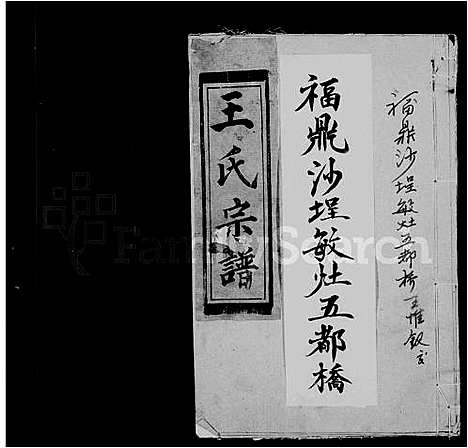 福鼎沙埕敏灶五都橋王惟釵
福鼎沙埕敏灶五都橋
王氏宗譜
FamilySearch